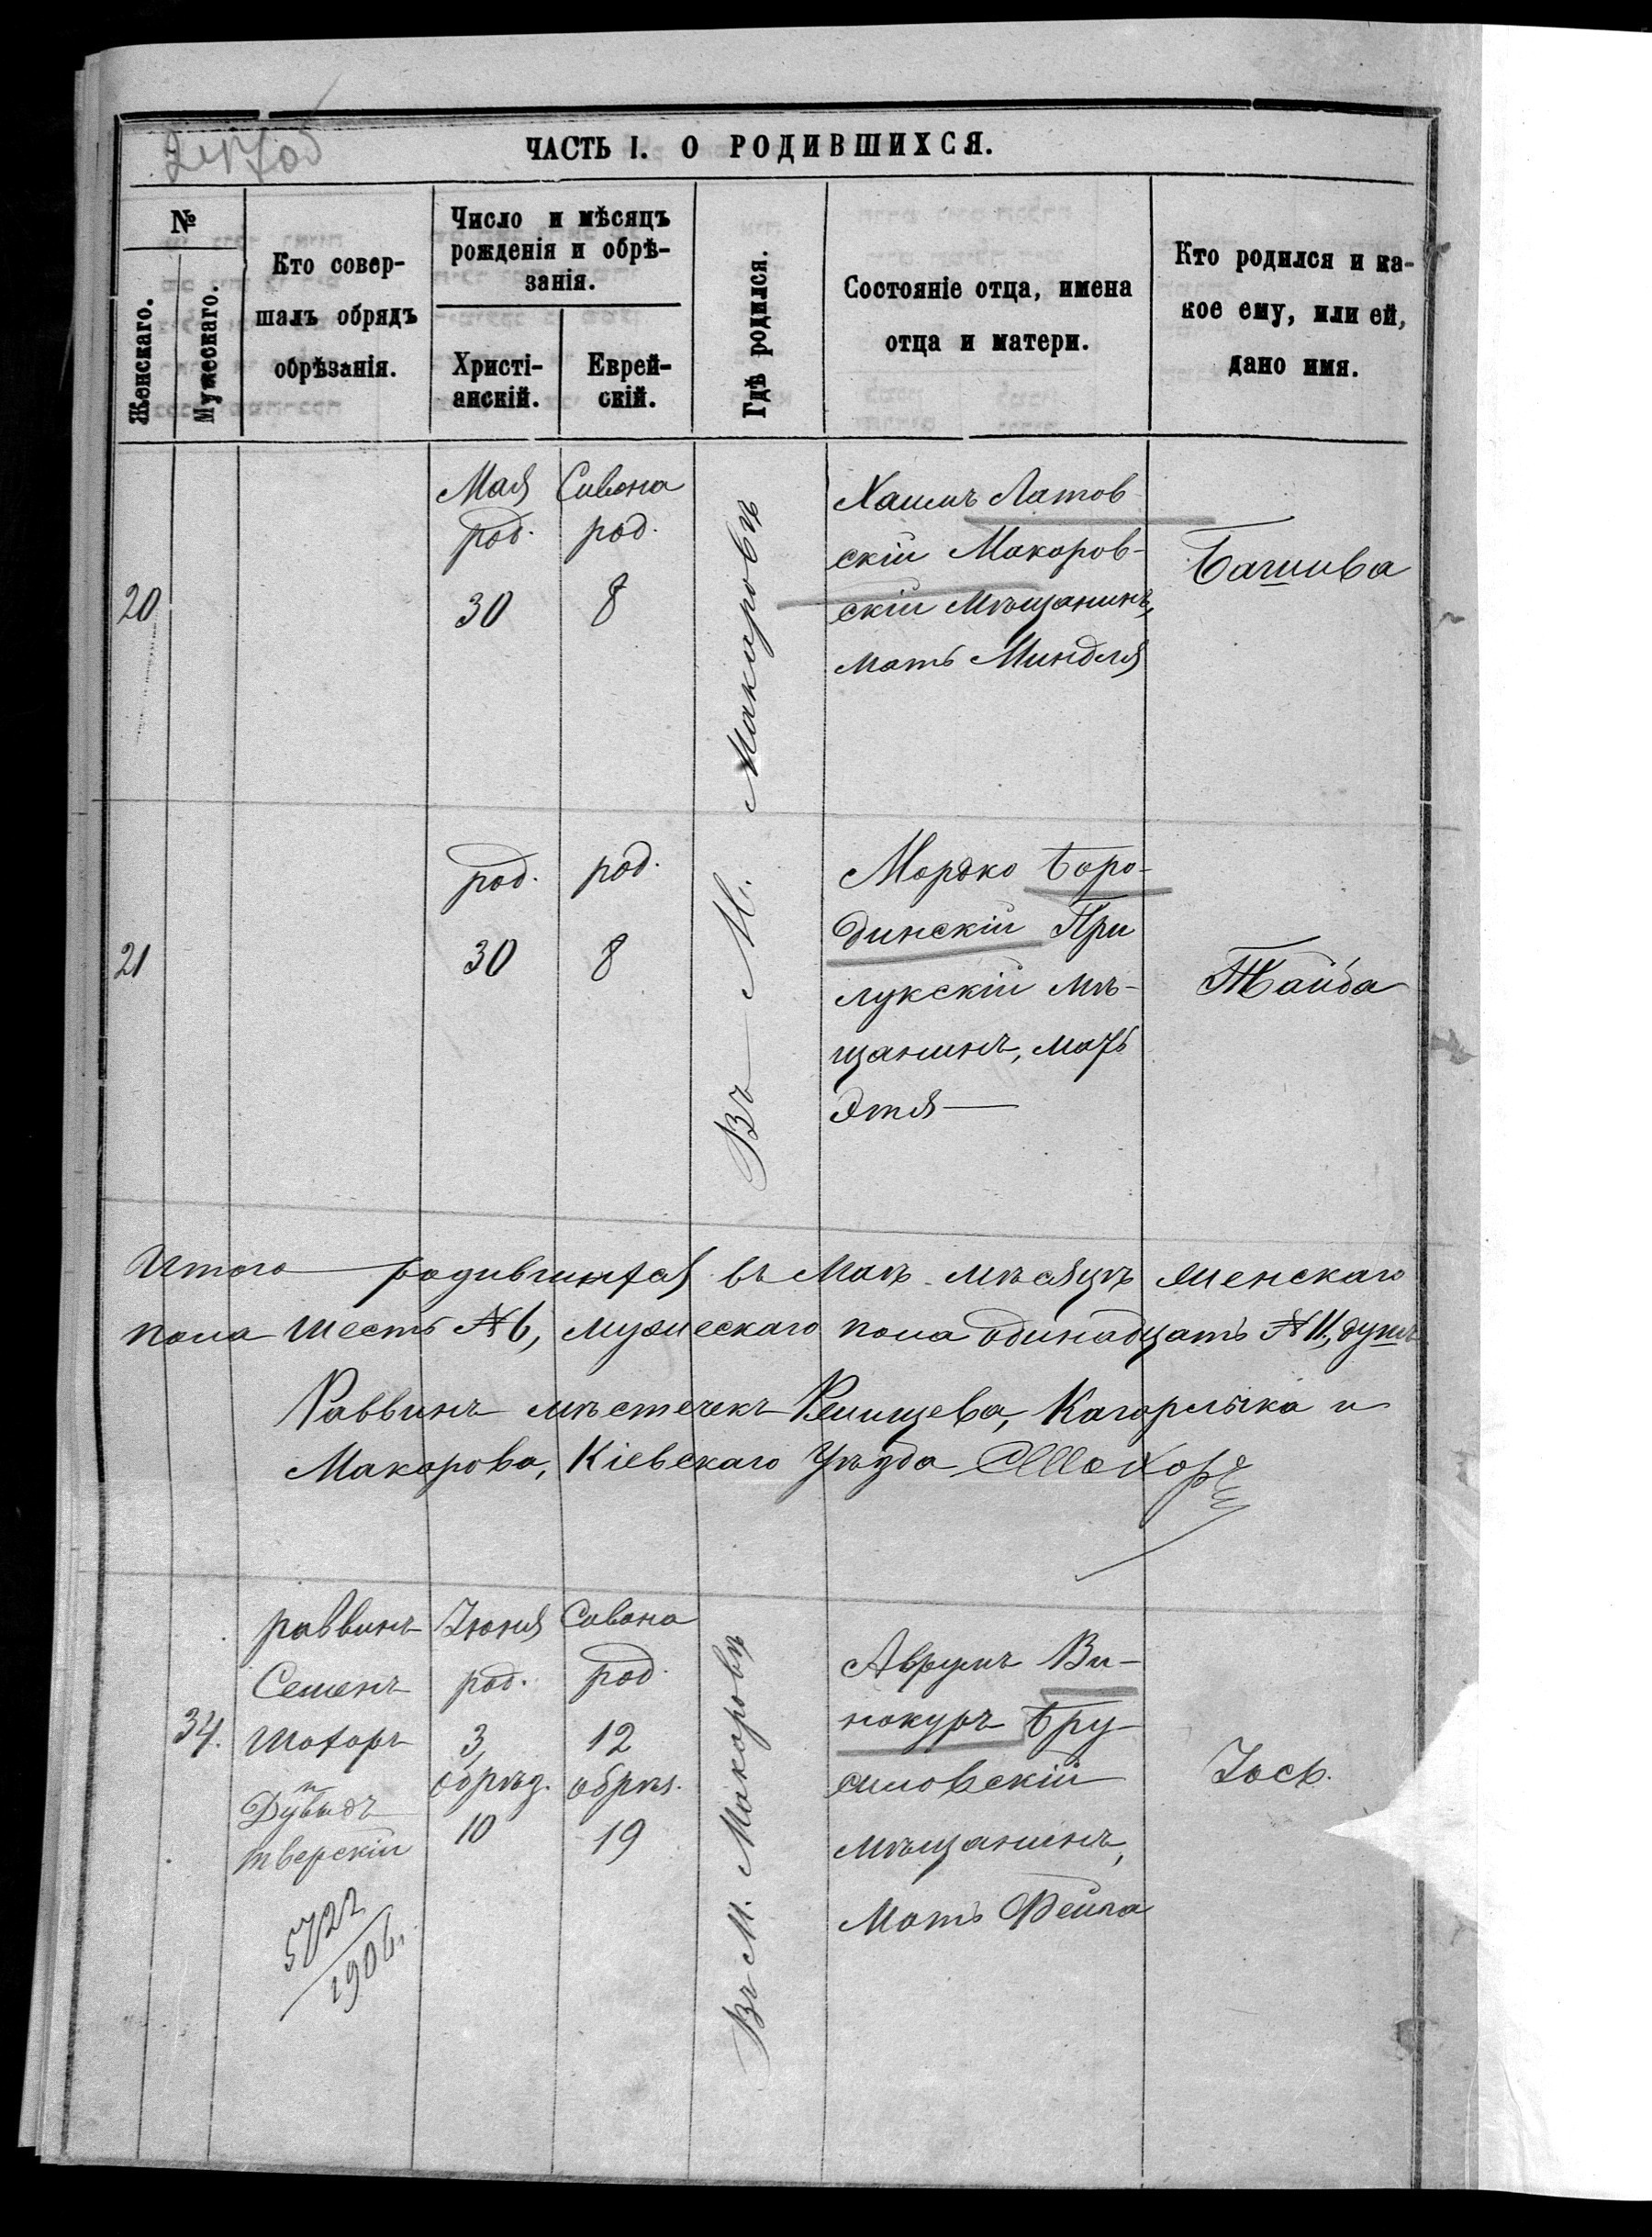 247об
ЧАСТЬ I. О РОДИВШИХСЯ.
№
Женскаго.
Мужескаго.
Кто совер-
шалъ обрядъ
обрѣзанія.
Число и мѣсяцъ
рожденія и обрѣ-
занія.
Христі-
анскій.
Еврей-
скій.
Гдѣ родился.
Состояніе отца, имена
отца и матери.
Кто родился и ка-
кое ему, или ей,
дано имя.
20
Мая
род.
30
Сивона
род.
8
Въ М. Макаровѣ
Хаимъ Латов
скій Макаров-
скій мѣщанинъ,
мать Миндля
Башива
21
род.
30
род.
8
Мордко Боро-
динскій При
лукскій мѣ-
щанинъ, мать
Этля
Тайба
Итого родившихся въ Маѣ мѣсяцѣ женскаго
пола шесть № 6, мужескаго пола одинадцать № 11, душъ
Раввинъ мѣстечекъ Ржищева, Кагорлыка и
Макарова, Кіевскаго Уѣзда СШохоръ
34.
раввинъ
Семенъ
Шохоръ
и
Дувидъ
тверскій
5722
1906.
Іюня
род.
3,
обрѣз.
10
Сивона
род.
12
обрѣз.
19
Въ М. Макаровѣ
Аврумъ Ви-
нокуръ Бру-
силовскій
мѣщанинъ,
Мать Фейга
Іось.